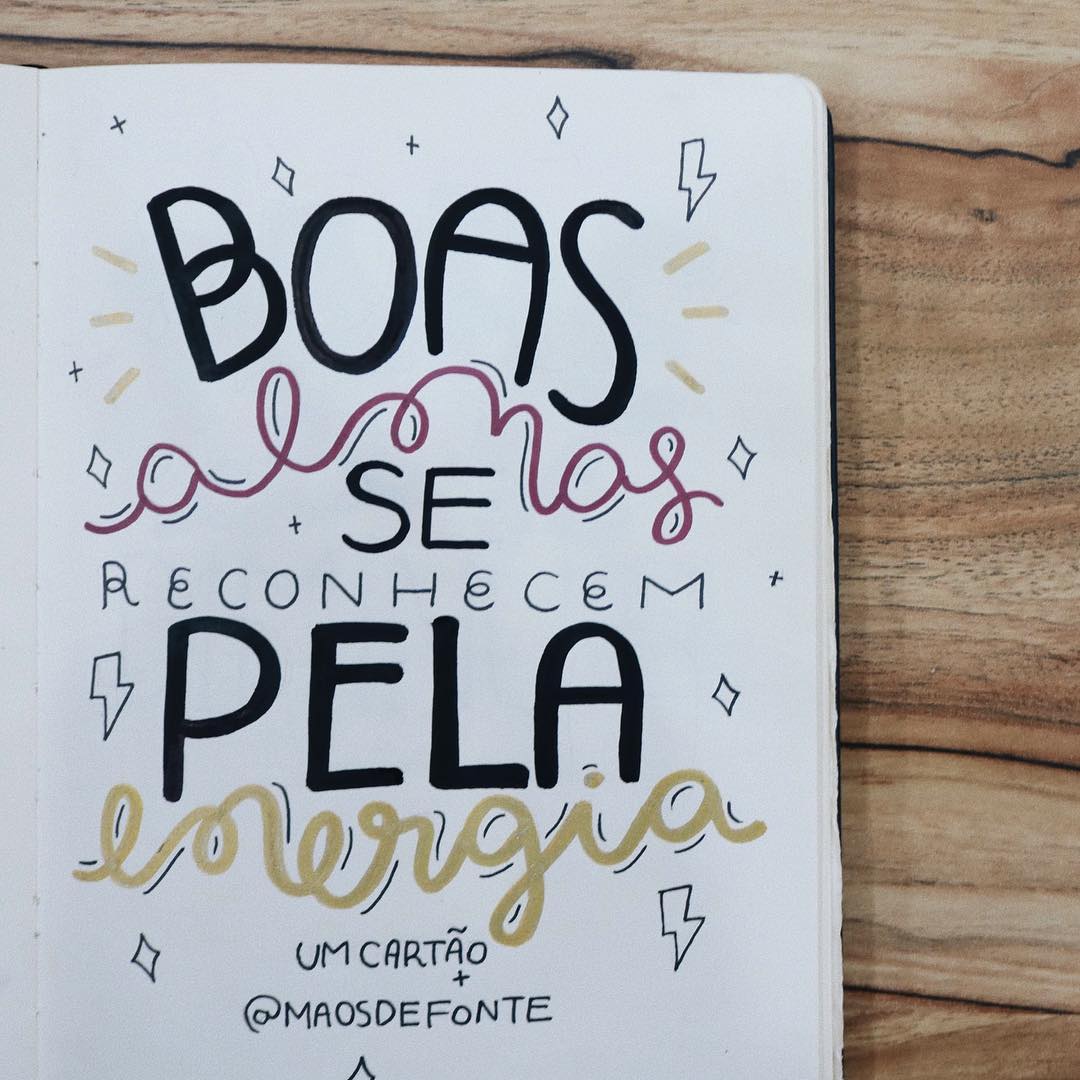 BOAS
almas
SE
RECONHECEM
PELA
energia
UM CARTÃO
+
@MAOSDEFONTE